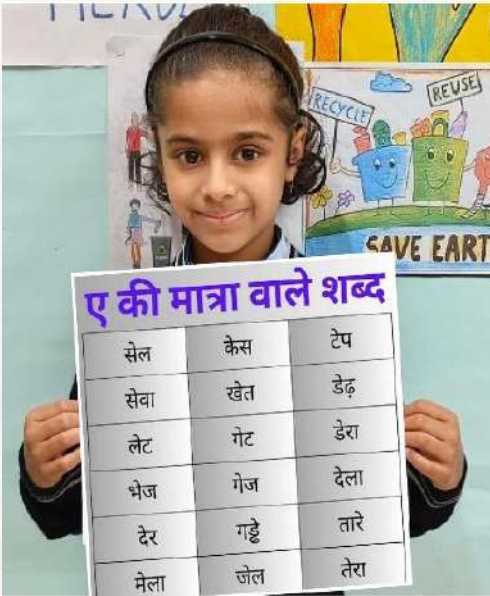 RECYCLE
REUSE
SAVE EART
ए की मात्रा वाले शब्द
सेल केस टेप
सेवा खेत डेढ़
लेट गेट डेरा
भेज गेज देला
देर गड्ढे तारे
मेला जेल तेरा